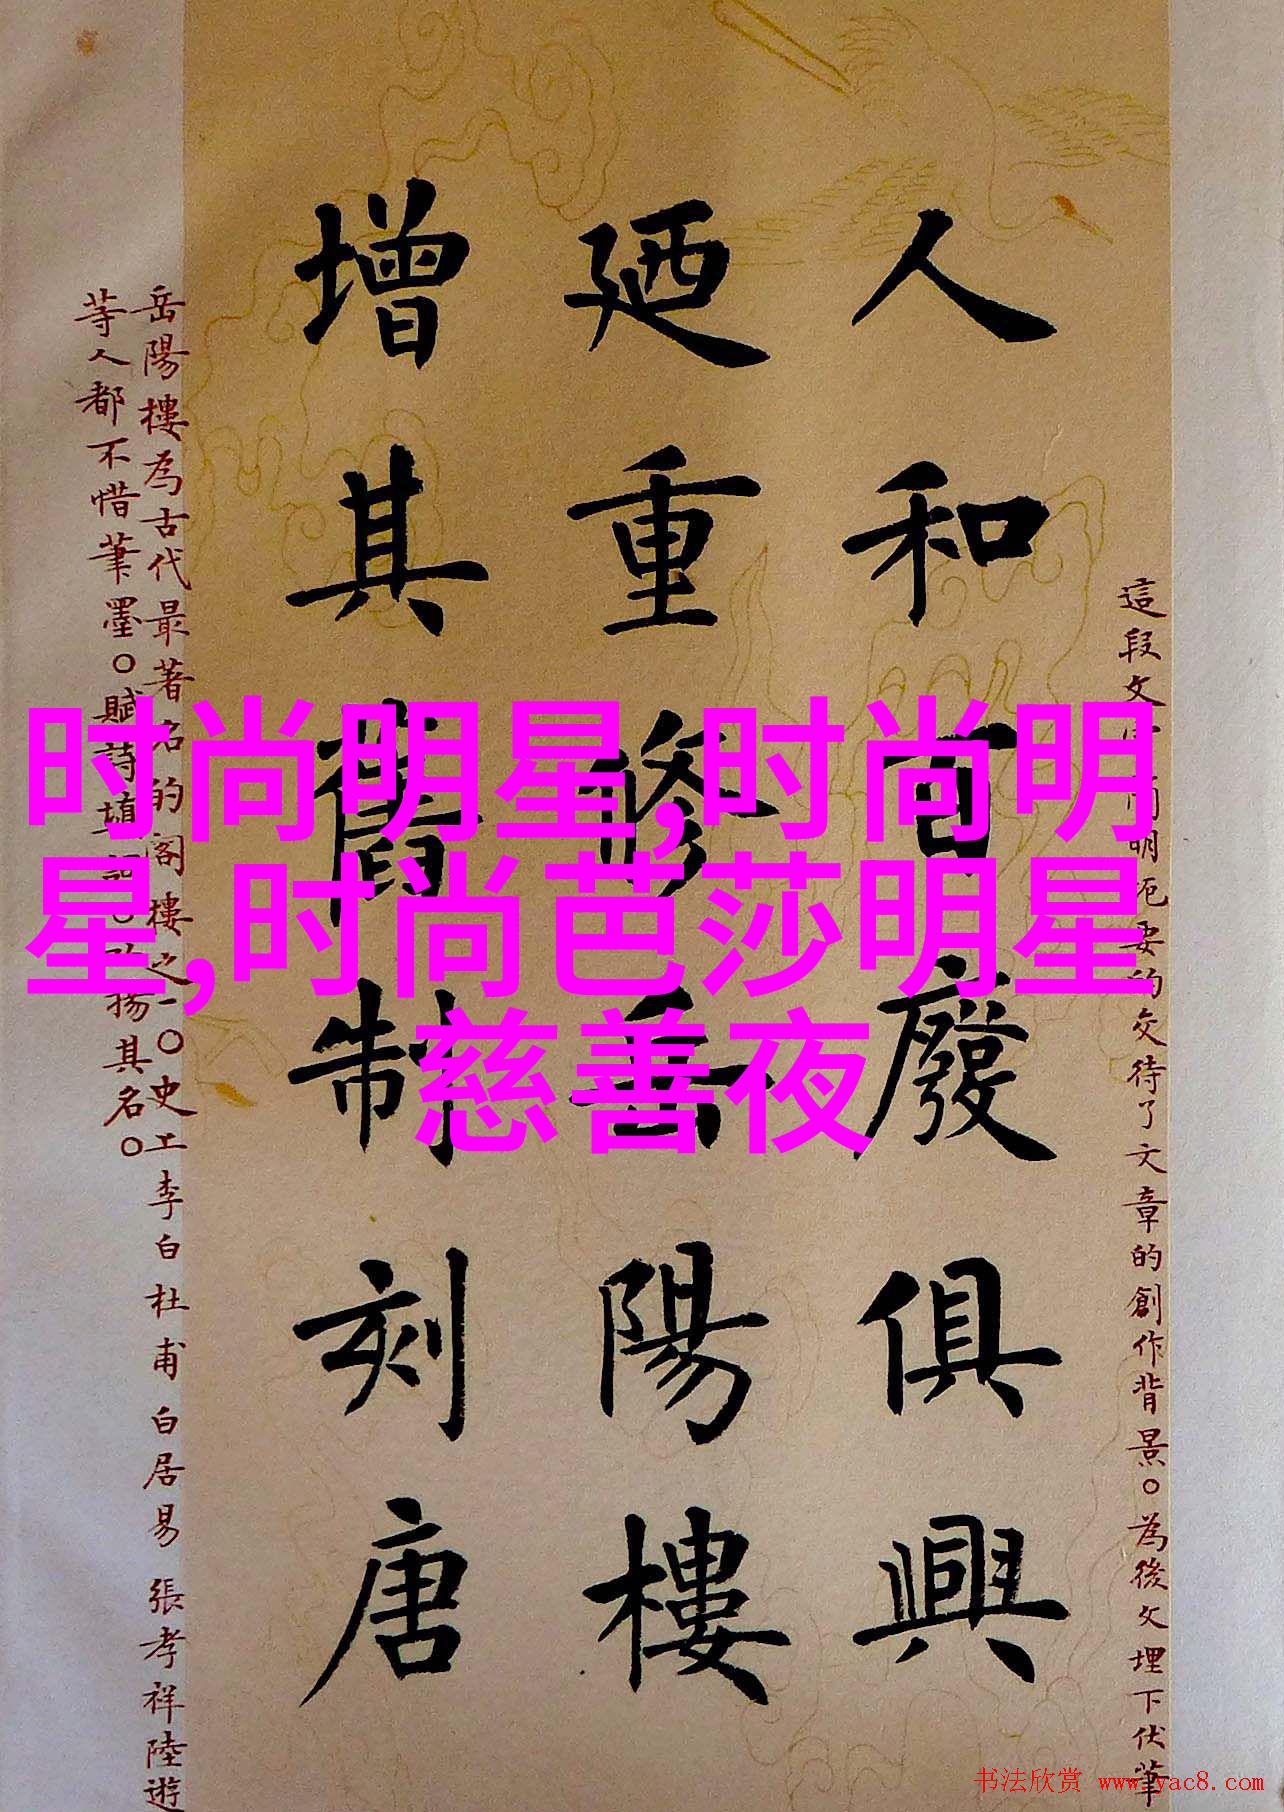 這段文字簡明扼要的交待了文章的創作背景。為後文埋下伏筆
人和百廢俱興
廼重修岳陽樓
增其舊制刻唐
岳陽樓為古代最著名的閣樓之一。史上李白杜甫白居易張孝祥陸遊
等人都不惜筆墨。賦詩填詞。以揚其名。
时尚明星,时尚明
星,时尚芭莎明星
慈善夜
书法欣赏 www.yac8.com